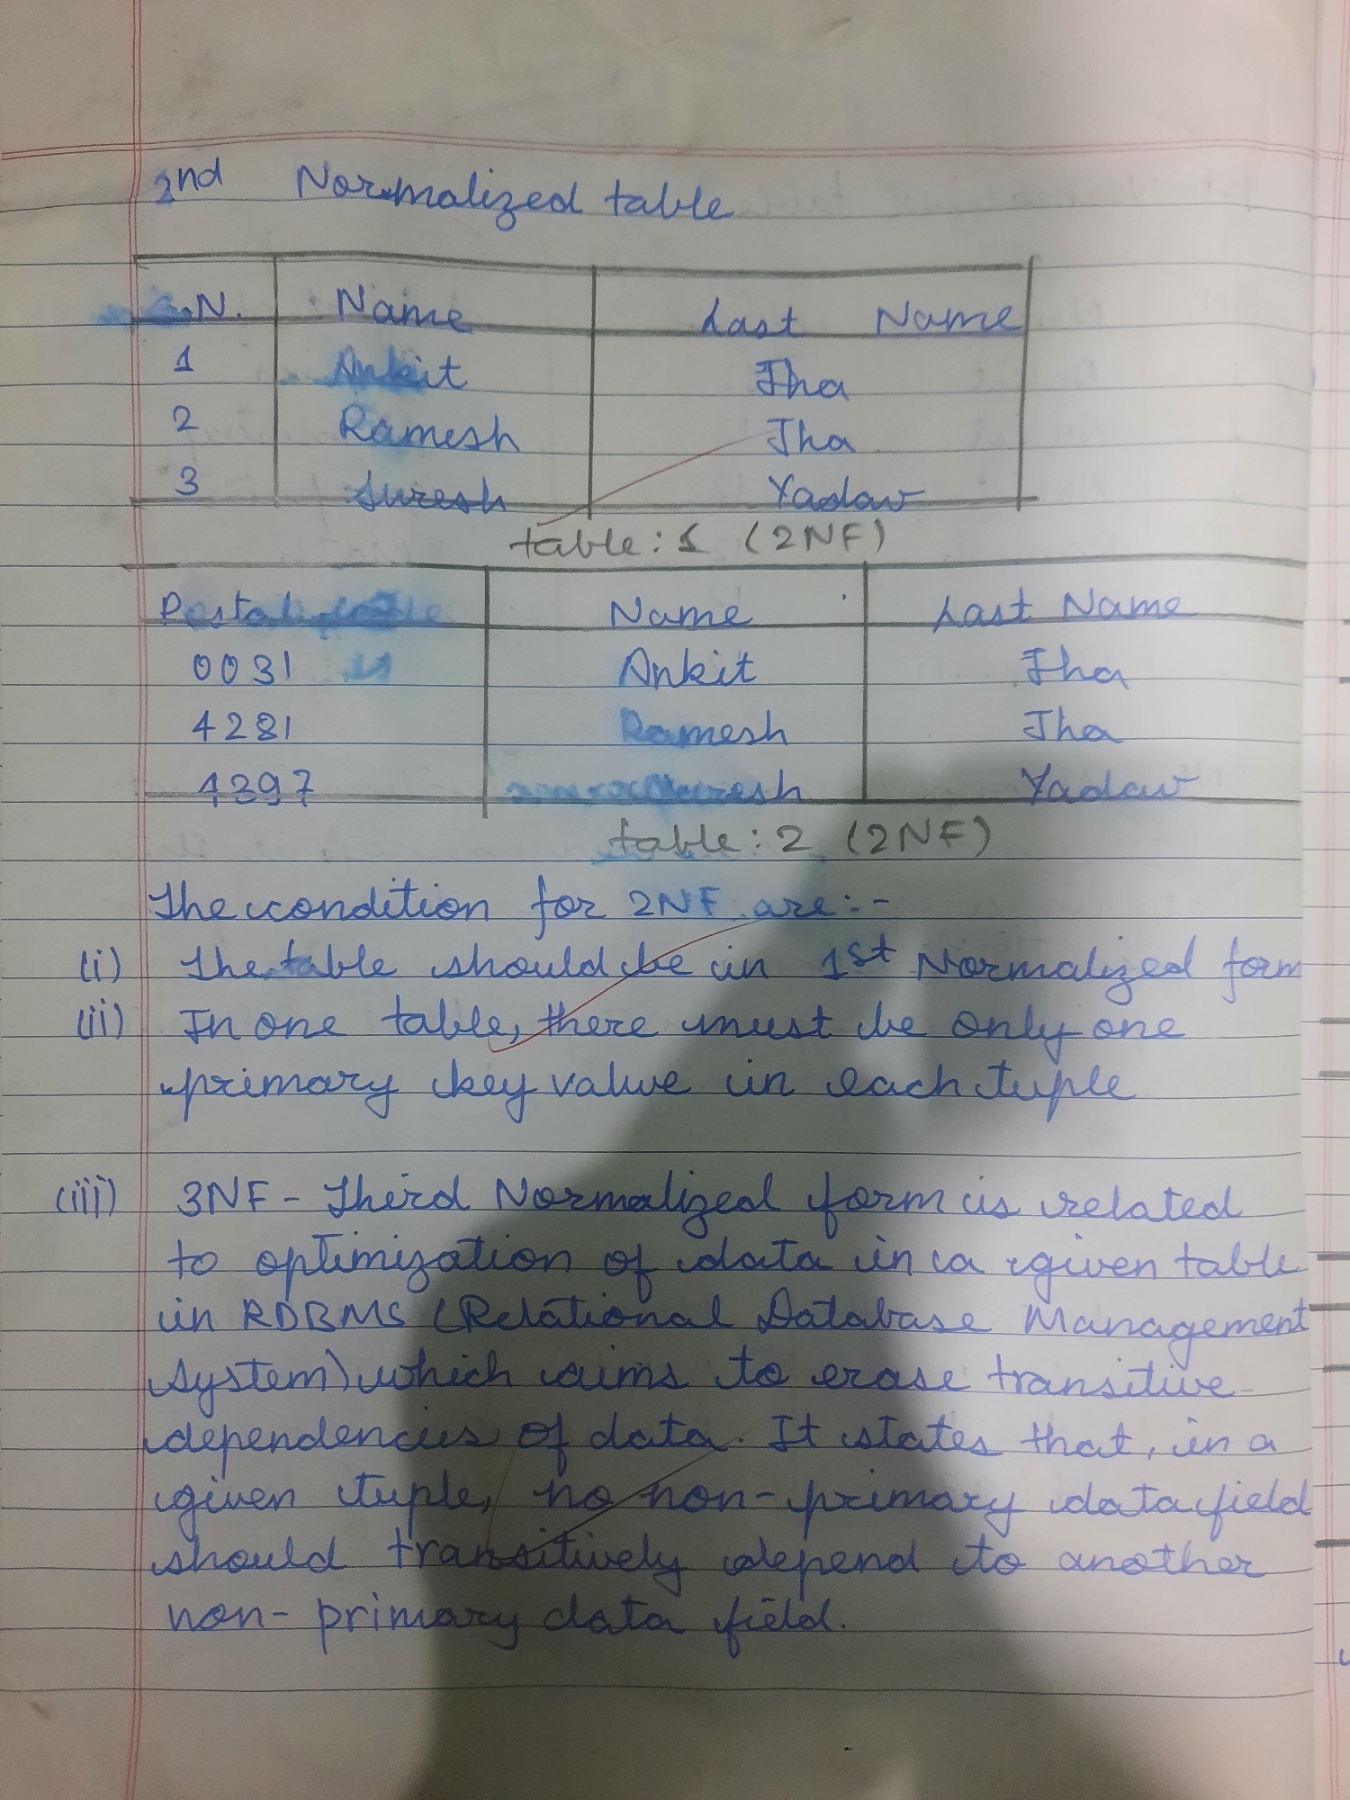 2nd Normalized table
S.N. Name Last Name
1 Ankit Jha
2 Ramesh Jha
3 Suresh Yadav
table: 1 (2NF)
Postal code Name Last Name
0031 Ankit Jha
4281 Ramesh Jha
4297 Suresh Yadav
table: 2 (2NF)
The condition for 2NF are:-
(i) The table should be in 1st Normalized form
(ii) In one table, there must be only one
primary key value in each tuple
(iii) 3NF - Third Normalized form is related
to optimization of data in a given table
in RDBMS (Relational Database Management
System) which aims to erase transitive
dependencies of data. It states that, in a
given tuple, no non-primary data field
should transitively depend to another
non-primary data field.